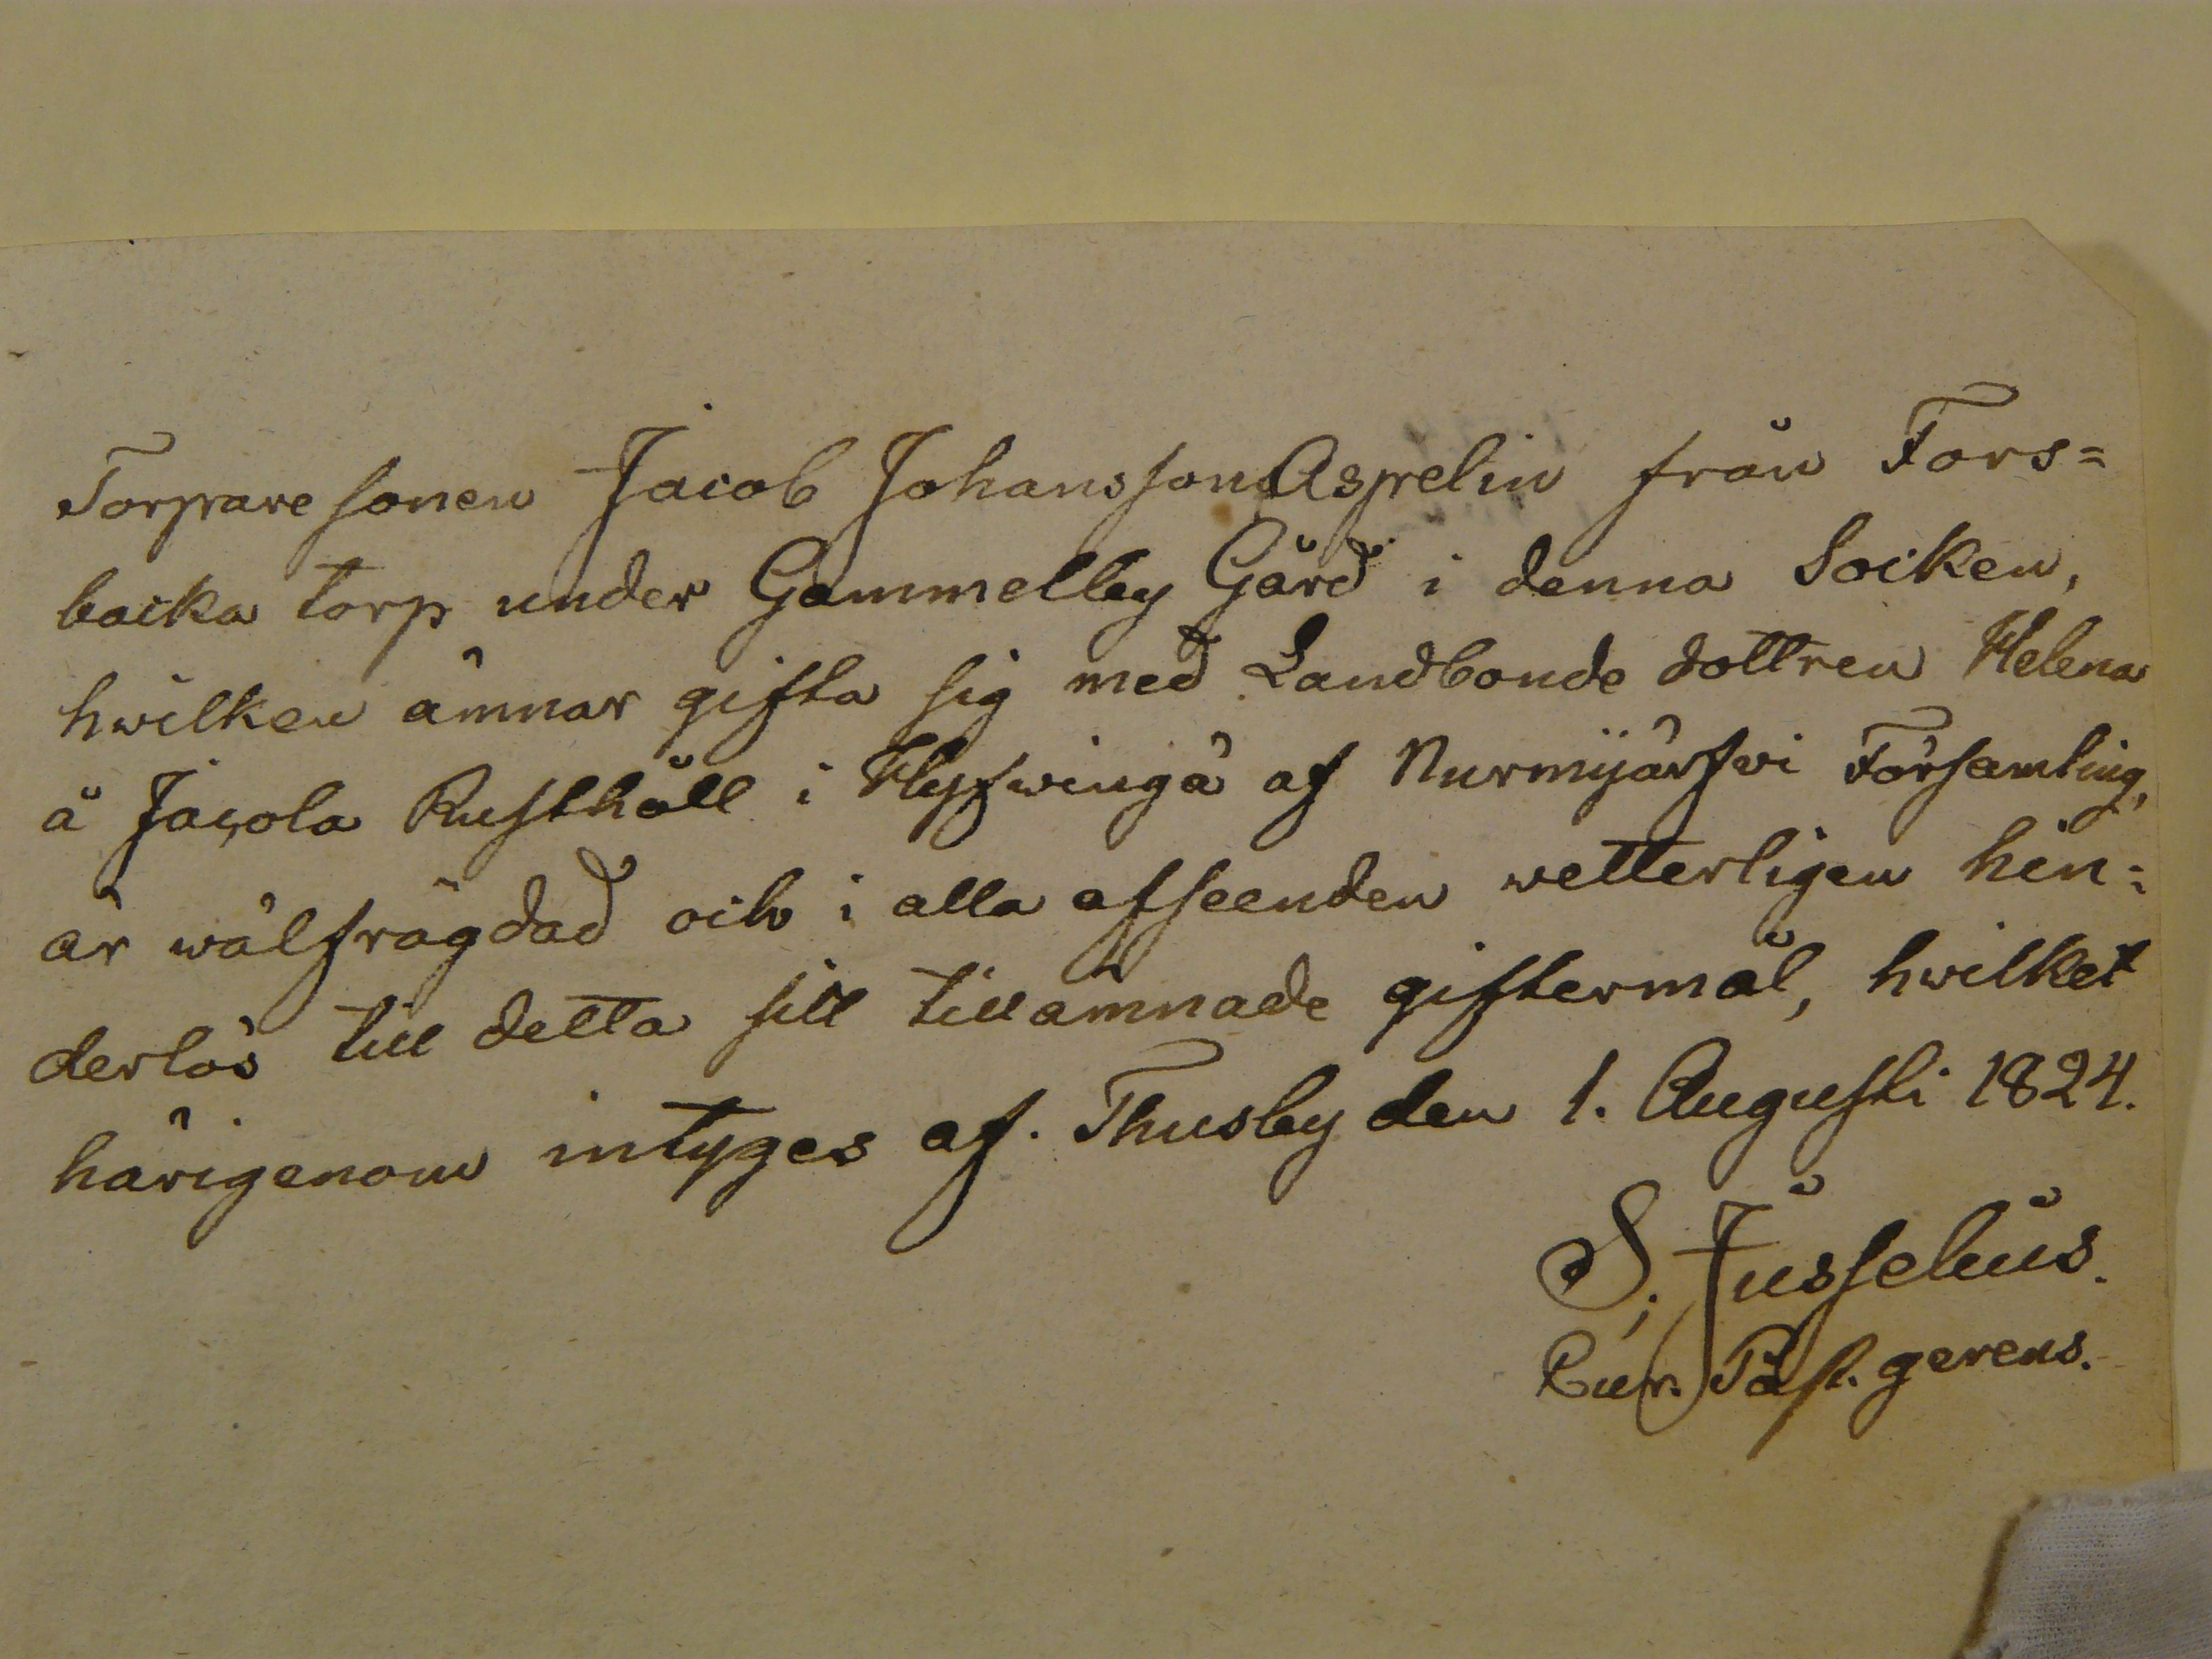 Torpare sonen Jacob Johansson Asprelin från Fors=
backa torp under Gammelby Gård i denna Socken,
hwilken ämnar gifta sig med Landbonde dottren Helena
å Jacola Rusthåll i Hyfwingä af Nurmijärfwi Församling,
är wälfrägdad och i alla afseenden wetterligen hin=
derlös till detta sitt tillämnade giftermål, hwilket
härigenom intyges af. Thusby den 1. Augusti 1824.
S. Jusselius.
Cur. Past. gerens.